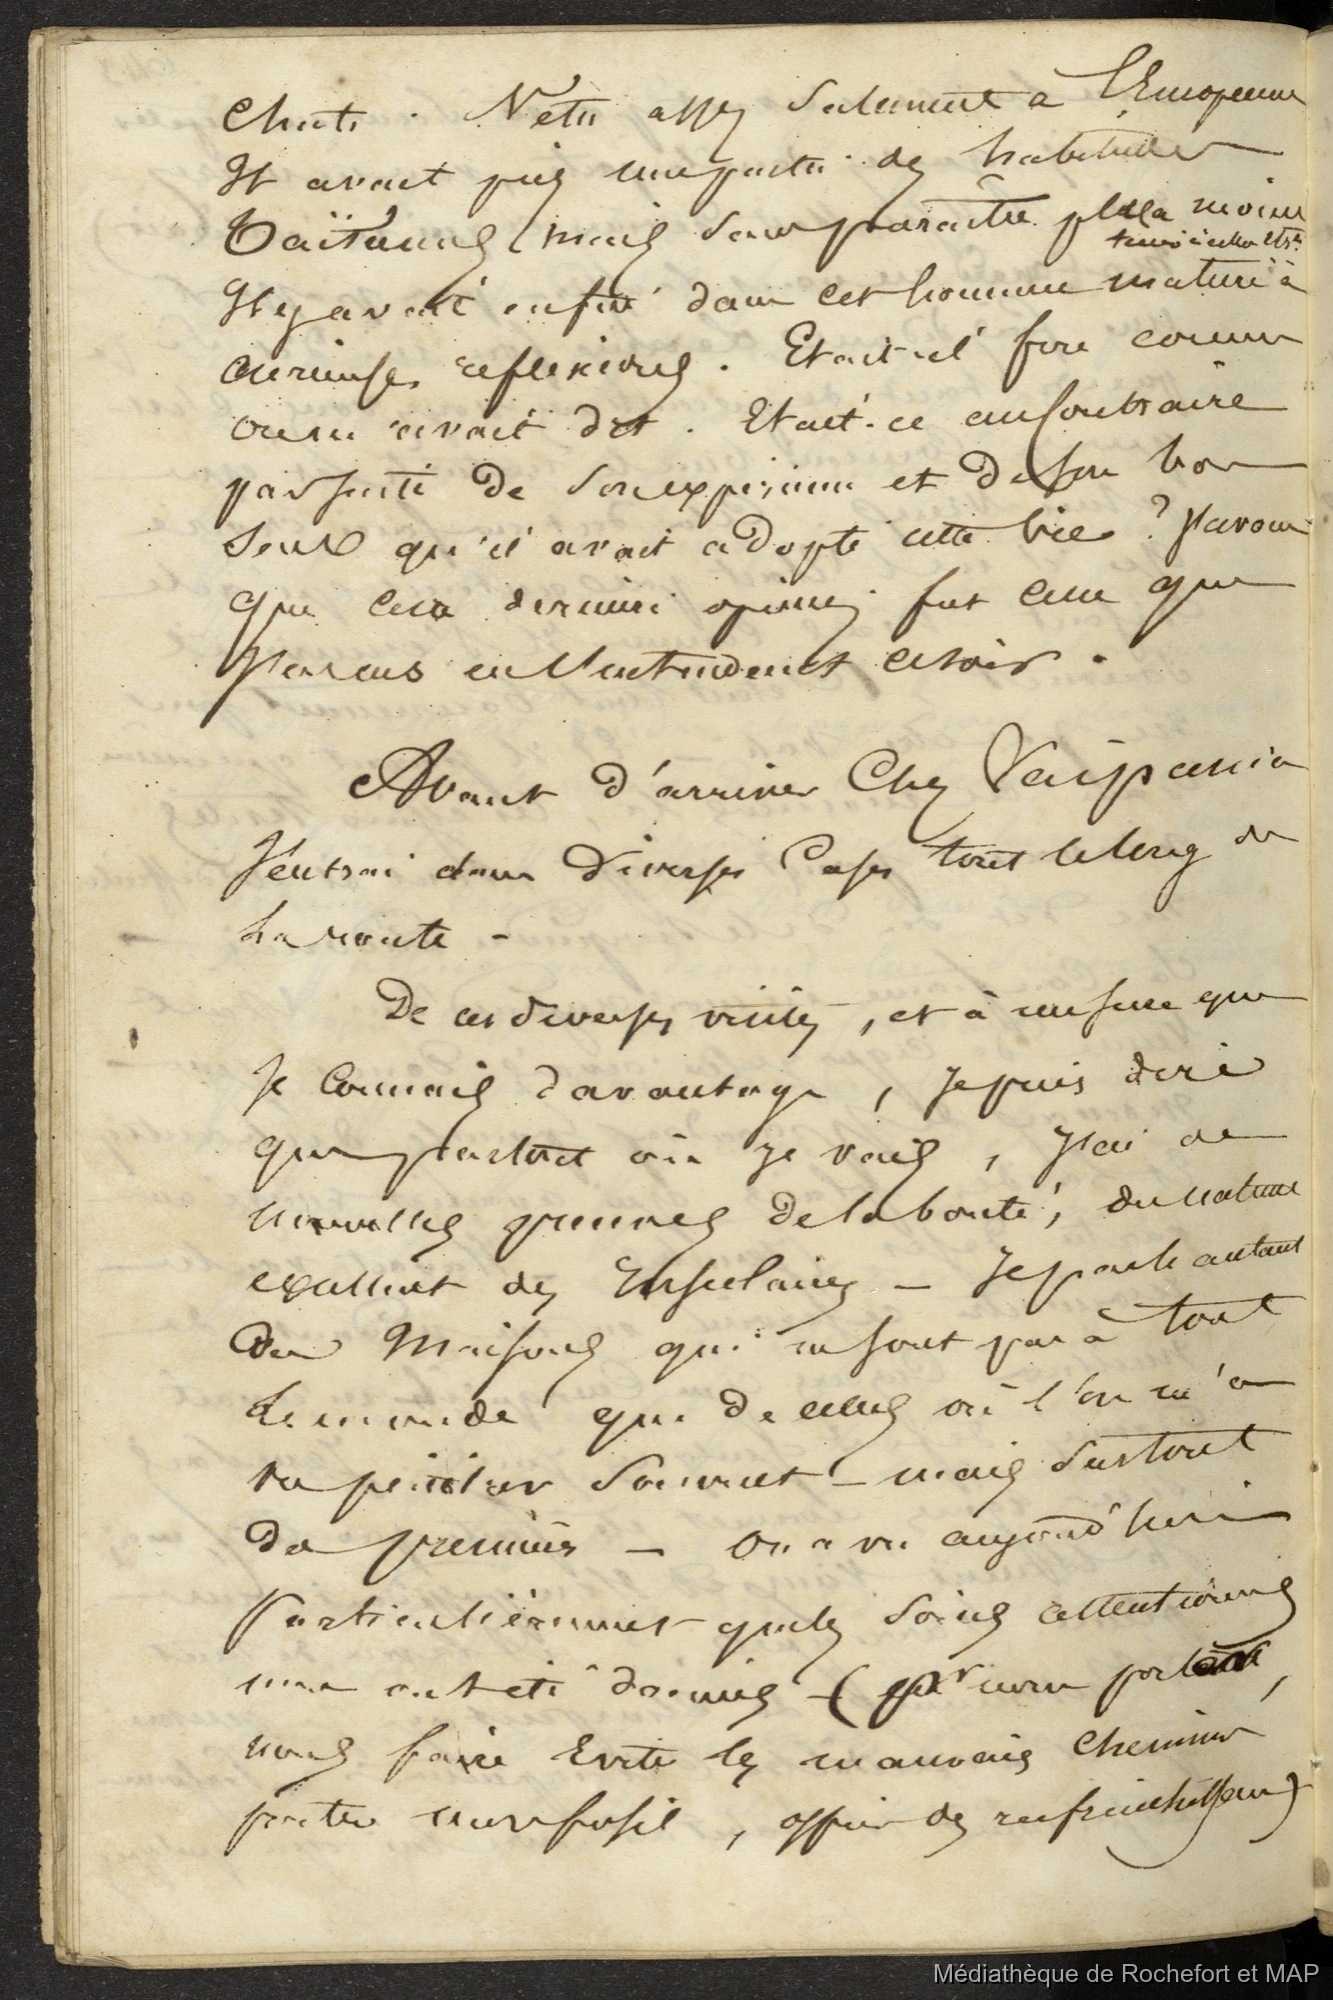 Chats. Vetu assez salement à l'Européenne
Il avait pris une partie des habitudes
Taïtiennes, mais sans paraître plus la moins
tenir à cela etc.
Il y avait enfin dans cet homme matière à
curieuses reflexions. Etait-il fou comme
on me l'avait dit. Etait-ce au contraire
par suite de son experience et de son bon
sens qu'il avait adopté cette vie ? J'avoue
que cette dernière opinion fut celle que
j'en eus en l'entendant ce soir.
Avant d'arriver chez Vaipania
J'entrai dans diverses cases tout le long de
la route -
De ces diverses visites, et à mesure que
je connais davantage, je puis dire
que partout où je vais, j'ai de
nouvelles preuves de la bonté, du naturel
excellent des Insulaires - Je parle autant
des maisons qui ne sont pas à tout
le monde que de celles où l'on m'a
vu souvent - mais surtout
des premières - On a vu aujourd'hui
particulièrement quels soins attentionnés
nous ont été donnés - ( pr nous porter,
nous faire éviter les mauvais chemins
porter mon fusil, offrir des rafraichissem)
Médiathèque de Rochefort et MAP